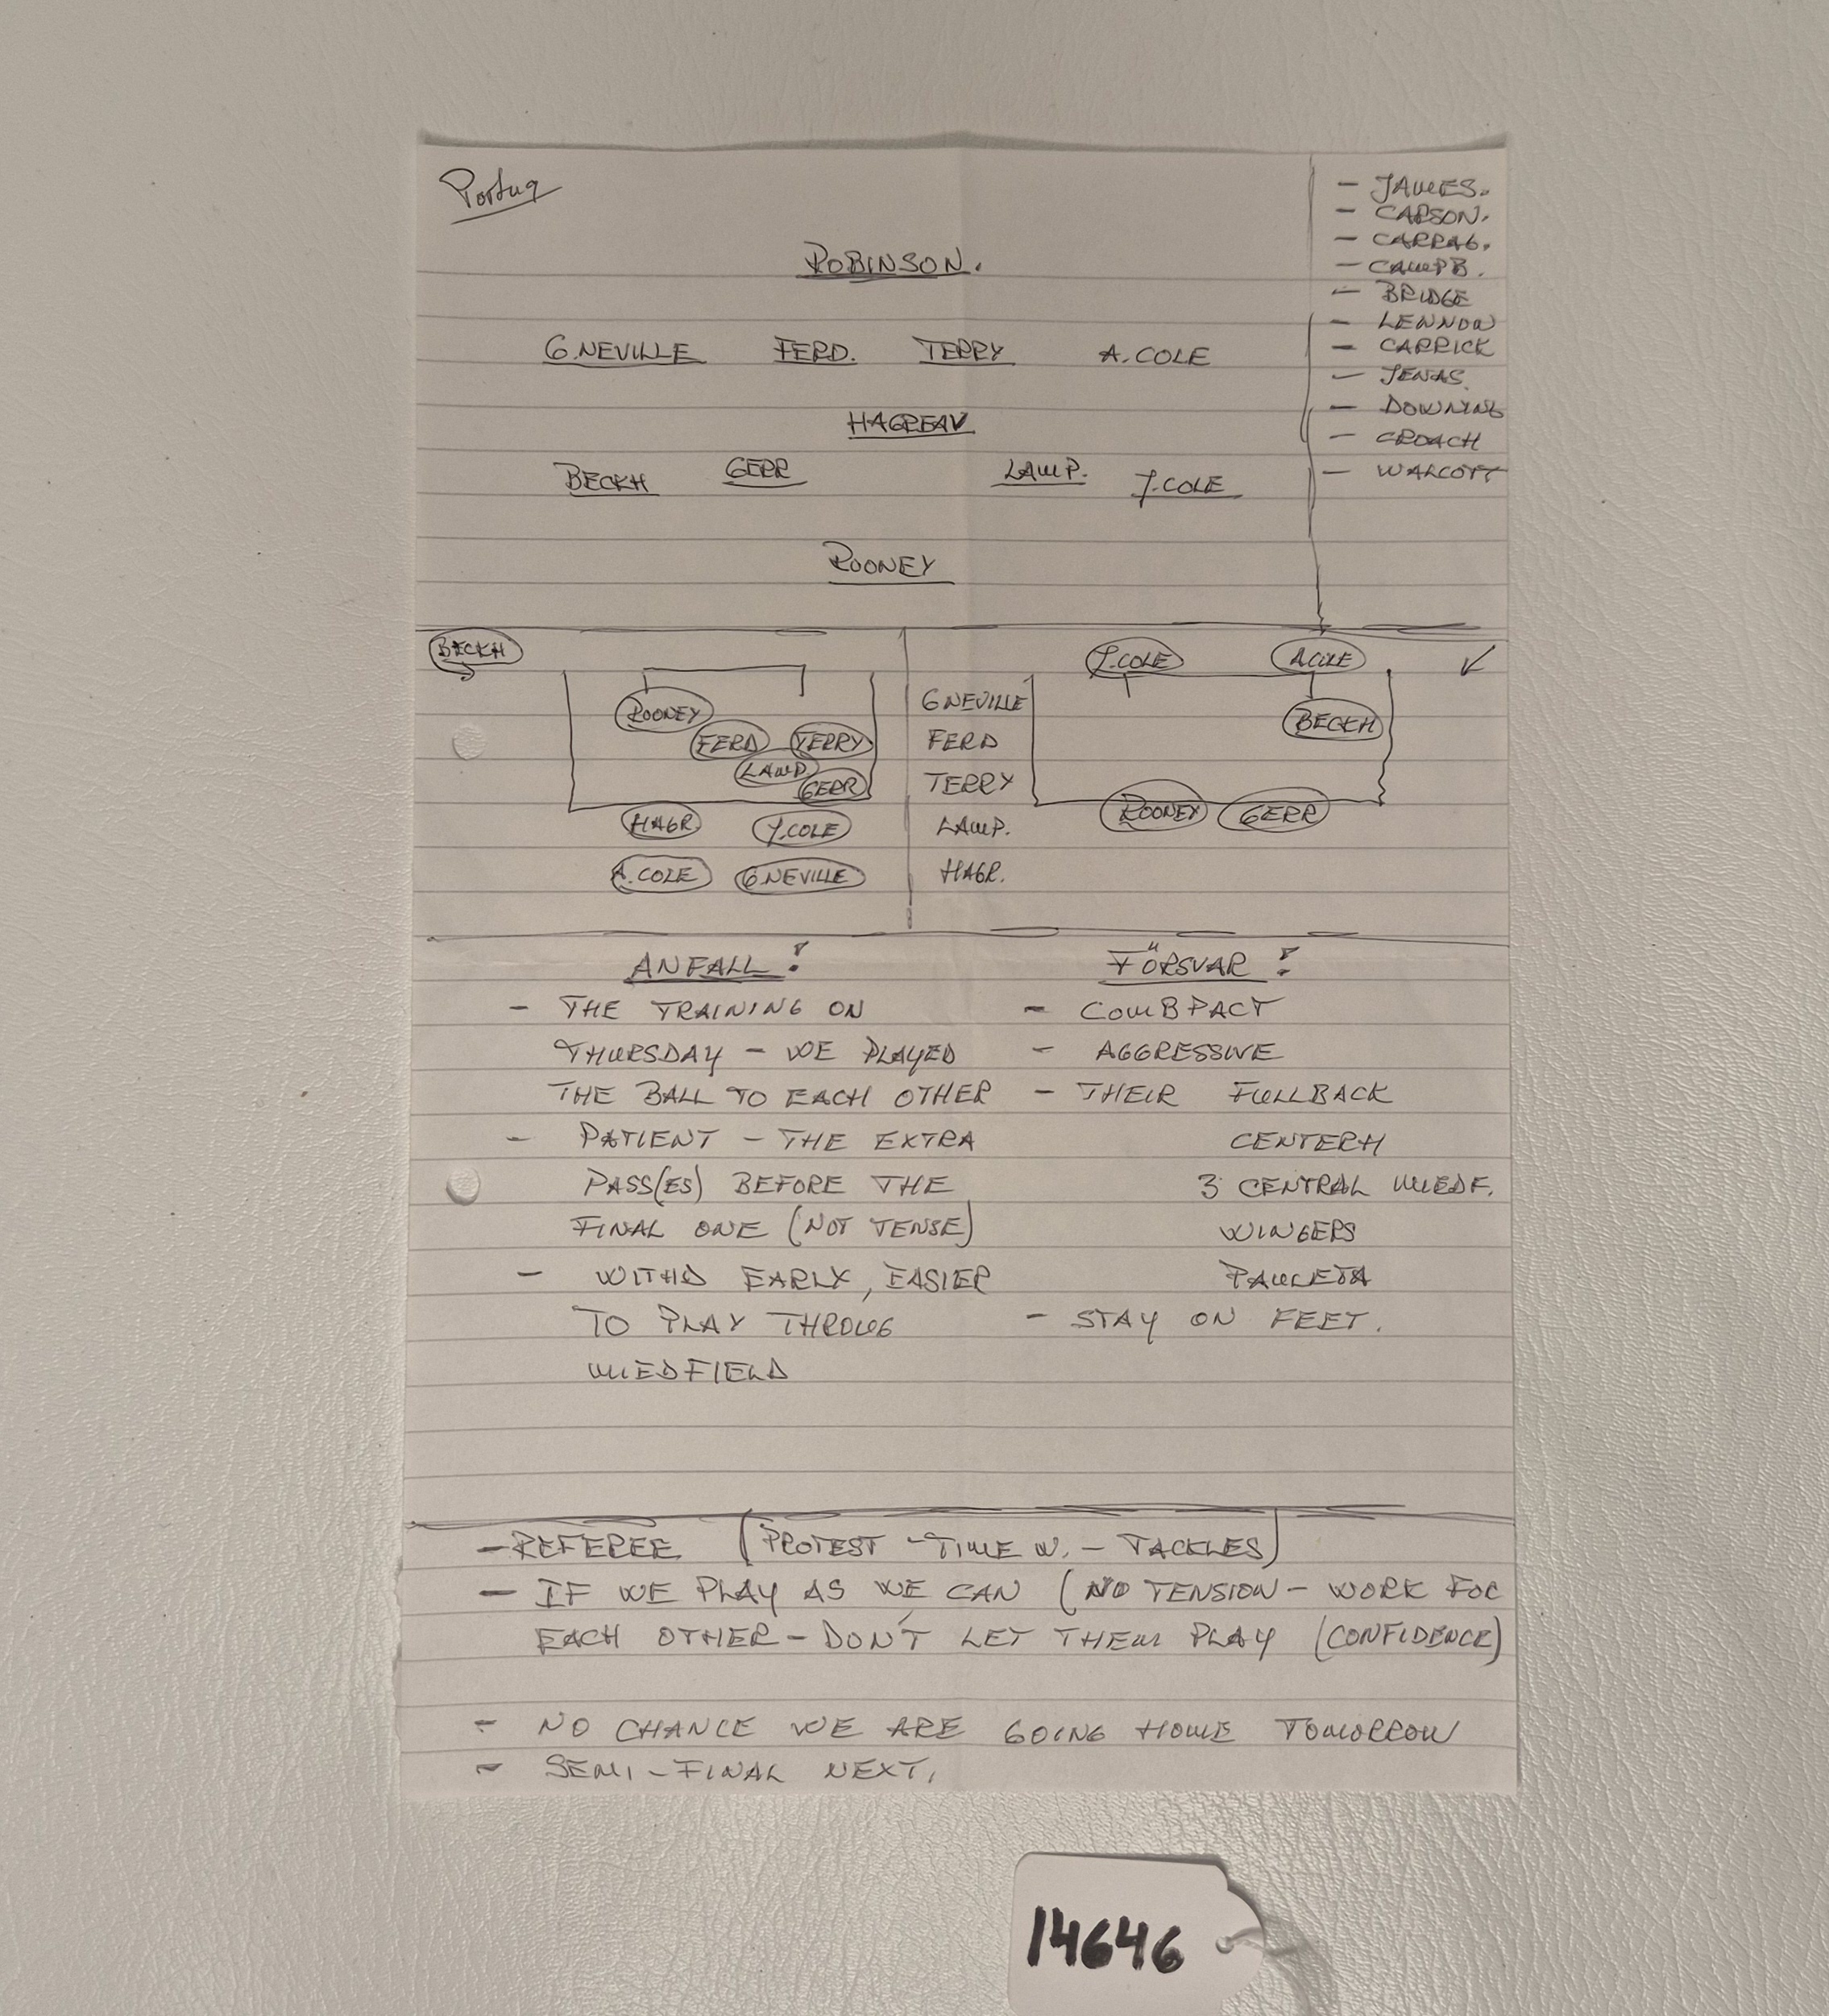 Portug
ROBINSON.
G.NEVILLE FERD. TERRY A.COLE
HAGREAV
BECKH GERR LAMP. J.COLE
ROONEY
- JAMES.
- CARSON.
- CARRAG.
- CAMPB.
- BRIDGE
- LENNON
- CARRICK
- JENAS.
- DOWNING
- CROACH
- WALCOTT
BECKH
ROONEY
FERD TERRY
LAMP
GERR
HAGR. J.COLE
A.COLE G.NEVILLE
G NEVILLE
FERD
TERRY
LAMP.
HAGR.
J.COLE A.COLE
BECKH
ROONEY GERR
ANFALL!
- THE TRAINING ON
THURSDAY - WE PLAYED
THE BALL TO EACH OTHER
- PATIENT - THE EXTRA
PASS(ES) BEFORE THE
FINAL ONE (NOT TENSE)
- WITHD EARLY, EASIER
TO PLAY THROUG
MIEDFIELD
FÖRSVAR!
- COMBPACT
- AGGRESSIVE
- THEIR FULLBACK
CENTERH
3 CENTRAL MIEDF.
WINGERS
PAULETA
- STAY ON FEET.
- REFEREE (PROTEST - TIME W. - TACKLES)
- IF WE PLAY AS WE CAN (NO TENSION - WORK FOR
EACH OTHER - DON'T LET THEM PLAY (CONFIDENCE)
- NO CHANCE WE ARE GOING HOME TOMORROW
- SEMI-FINAL NEXT.
14646